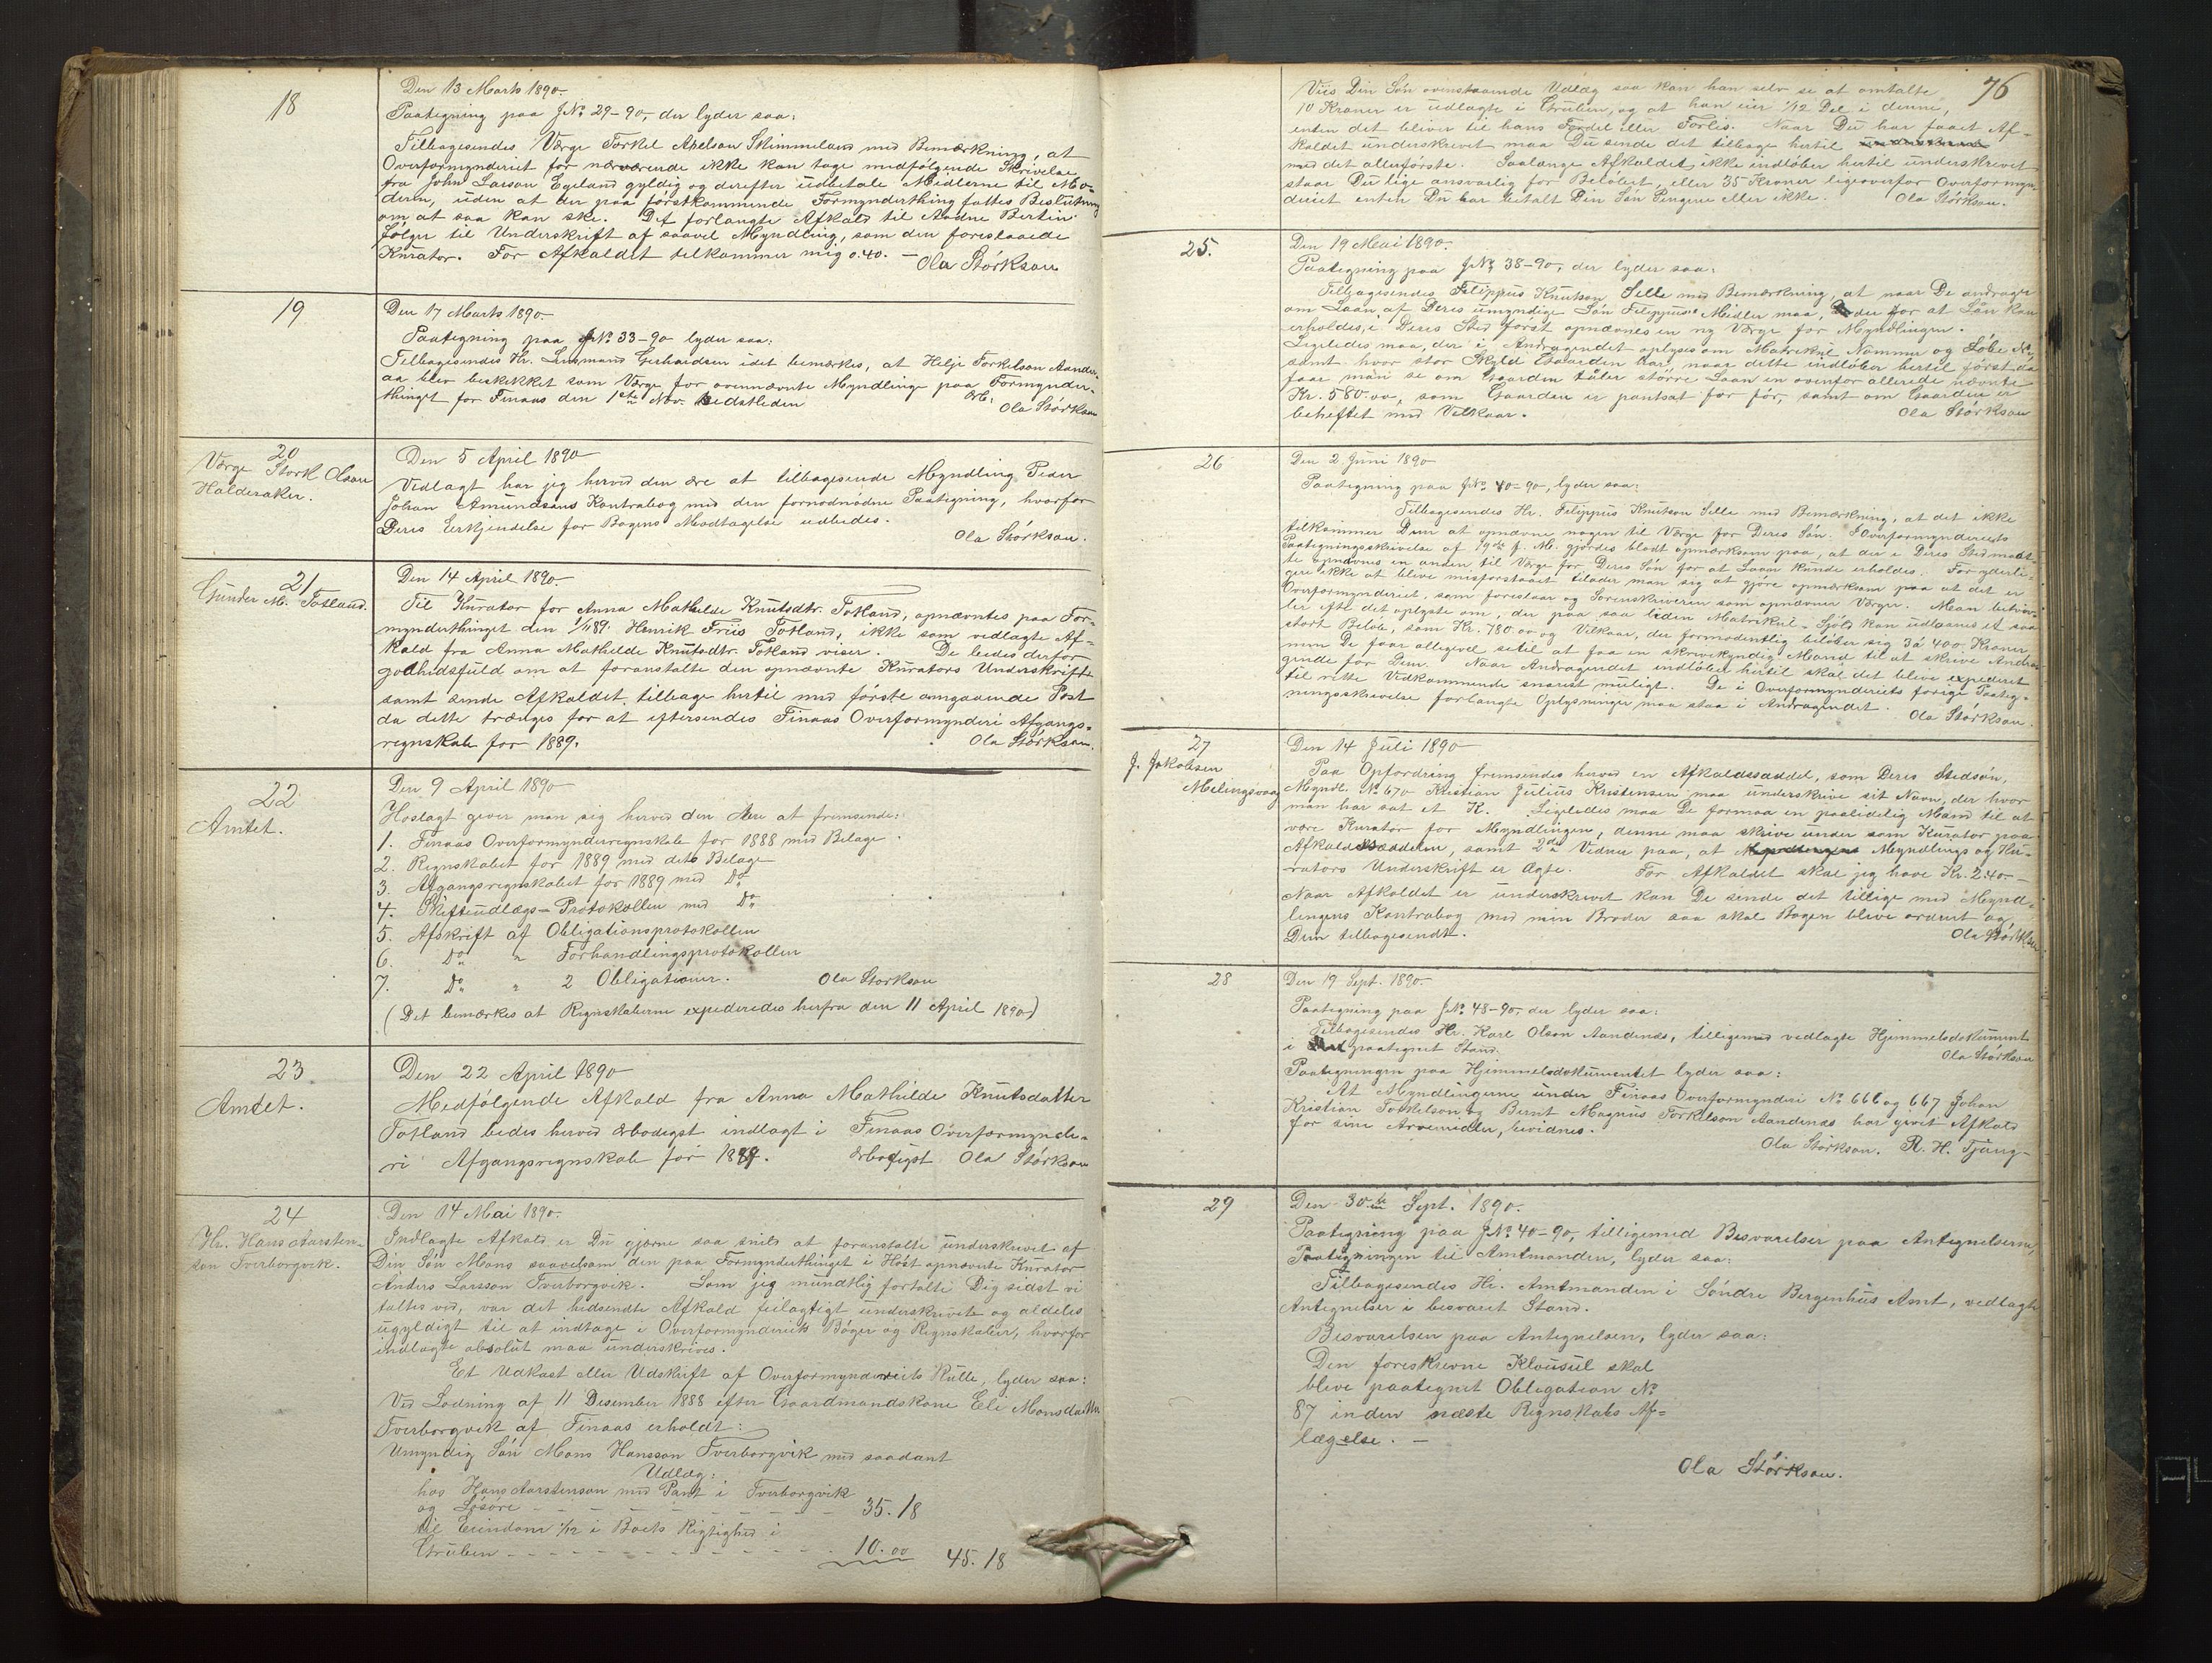 18
Den 13 Marts 1890.
Paategning paa JNo 29-90, der lyder saa:
Tilbagesendes Værge Torkel Axelson Skimmeland med Bemærkning, at
Overformynderiet for nærværende ikke kan tage medfølgende Skrivelse
fra John Larson Egeland gyldig og derefter udbetale Midlerne til Mo-
deren, uden at der paa førstkommende Formynderthing fattes Beslutning
om at saa kan ske. Det forlangte Afkald til Aadne Bertin
følger til Underskrift af saavel Myndling, som den foreslaaede
Kurator. For Afkaldet tilkommer mig 0.40. – Ola Størkson
19
Den 17 Marts 1890.
Paategning paa JNo 33-90 lyder saa:
Tilbagesendes Hr. Lensmand Gerhardsen idet bemærkes, at Helje Torkelson
aa blev beskikket som Værge for ovennævnte Myndlinge paa Formynder-
thinget for Finaas den 1ste Nov. sidstleden
Ola Størkson
20
Værge Størk Olson
Haldoraker.
Den 5 April 1890
Vedlagt har jeg herved den ære at tilbagesende Myndling Peder
Johan Amundsens Kontrabog med den fornødne Paategning, hvorfor
Deres Erkjendelse for Bogens Modtagelse udbedes.
Ola Størkson.
21
Gunder M. Totland.
Den 14 April 1890.
Til Kurator for Anna Mathilde Knutsdtr. Totland, opnævntes paa For-
mynderthinget den 1/11 89. Henrik Friis Totland, ikke som vedlagte Af-
kald fra Anna Mathilde Knutsdtr. Totland viser. De bedes derfor
godhedsfuld om at foranstalte den opnævnte Kurators Underskrift
samt sende Afkaldet tilbage hertil med første omgaaende Post
da dette trænges for at eftersendes Finaas Overformynderi Afgangs-
regnskab for 1889. Ola Størkson.
22
Amtet.
Den 9 April 1890
Hoslagt giver man sig herved den Ære at fremsende:
1. Finaas Overformynderregnskab for 1888 med Belage.
2. Regnskabet for 1889 med dets Belage
3. Afgangsregnskabet for 1889 med Do
4. Skifteudlægs-Protokollen med Do
5. Afskrift af Obligationsprotokollen
6. Do " Forhandlingsprotokollen
7. Do " 2 Obligationer. Ola Størkson
(Det bemærkes at Regnskaberne expederedes herfra den 11 April 1890)
23
Amtet.
Den 22 April 1890
Medfølgende Afkald fra Anna Mathilde Knutsdatter
Totland bedes herved ærbødigst indlagt i Finaas Overformynde-
ri Afgangsregnskab for 1889. Ærbødigst Ola Størkson
24
Hr. Hans Aarsten-
son Tverborgvik.
Den 14 Mai 1890.
Indlagte Afkald er Du gjerne saa snild at foranstalte underskrevet af
Din Søn Mons saavelsom den paa Formynderthinget i Høst opnævnte Kurator
Anders Larsson Tverborgvik. Som jeg mundtlig fortalte Dig sidst vi
taltes ved, var det hidsendte Afkald feilagtigt underskrivet og aldeles
ugyldigt til at indtage i Overformynderiets Bøger og Regnskaber, hvorfor
indlagte absolut maa underskrives.
Et Udkast eller Udskrift af Overformynderiets Rulle, lyder saa:
Ved Lodning af 11 Desember 1888 efter Gaardmandskone Eli Monsdatter
Tverborgvik af Finaas erholdt:
Umyndig Søn Mons Hansson Tverborgvik med saadant
Udlæg:
hos Hans Aarstenson med Pant i Tverborgvik
og Løsøre - - - - - - - 35.18
til Eiendom 1/12 i Boets Rigtighed i
Gruben - - - - - - - - - 10.00 45.18
76
Viis Din Søn ovenstaaende Udlæg saa kan han selv se at omtalte
10 Kroner er udlagte i Gruben, og at han eier 1/12 Del i denne,
enten det bliver til hans Fordel eller Forlis. Naar Du har faaet Af-
kaldet underskrevet maa Du sende det tilbage hertil
med det allerførste. Saalænge Afkaldet ikke indløber hertil underskrevet
staar Du lige ansvarlig for Beløbet, eller 35 Kroner ligeoverfor Overformyn-
deriet enten Du har betalt Din Søn Pengene eller ikke. Ola Størkson.
25.
Den 19 Mai 1890.
Paategning paa JNo 38-90, der lyder saa:
Tilbagesendes Filippus Knutson Selle med Bemærkning, at naar De andrager
om Laan af Deres umyndige Søn Filippus's Midler maa, der for at Lån kan
erholdes, i Deres Sted først opnævnes en ny Værge for Myndlingen.
Ligeledes maa, der i Andragendet oplyses om Matrikul Nummer og Løbe No,
samt hvor stor Skyld Gaarden har, naar dette indløber hertil først da
faar man se om Gaarden tåler større Laan en ovenfor allerede nævnte
Kr. 580.00, som Gaarden er pantsat for før, samt om Gaarden er
beheftet med Vilkaar. Ola Størkson
26
Den 2 Juni 1890
Paategning paa JNo 40-90, lyder saa:
Tilbagesendes Hr. Filippus Knutson Selle med Bemærkning, at det ikke
tilkommer Dem at opnævne nogen til Værge for Deres Søn. I Overformynderiets
Paategningsskrivelse af 19de f. M. gjordes blodt opmærksom paa, at der i Deres Sted maat-
te opnævnes en anden til Værge for Deres Søn for at Laan kunde erholdes. For yderli-
gere ikke at blive misforstaaet tilader man sig at gjøre opmærksom paa at det er
Overformynderiet, som foreslaar og Sorenskriveren som opnævner Værger. Man betviv-
ler efter det oplyste om, der paa saa liden Matrikul-Skjøld kan udlaanes et saa
stort Beløb, som Kr. 780.00 og Vilkaar, der formodentlig beløber sig 3 à 400 Kroner
men De faar allegevel setil at faa en skrivekyndig Mand til at skrive Andra-
gende for Dem. Naar Andragendet indløber hertil skal det blive expederet
til rette Vedkommende snarest muligt. De i Overformynderiets forige Paateg-
ningsskrivelse forlangte Oplysninger maa staa i Andragendet. Ola Størkson.
27
J. Jakobsen
Melingsvaag
Den 14 Juli 1890
Paa Opfordring fremsendes herved en Afkaldssaddel, som Deres Stedsøn,
Myndl. No 670 Kristian Julius Kristensen maa underskrive sit Navn, der hvor
man har sat et K. Ligeledes maa De formaa en paalidelig Mand til at
være Kurator for Myndlingen, denne maa skrive under som Kurator paa
Afkaldssaddelen, samt 2de Vidner paa, at Myndlings og Ku-
rators Underskrift er Ægte. For Afkaldet skal jeg have Kr. 2.40 –
Naar Afkaldet er underskrevet kan De sende det tillige med Mynd-
lingens Kontrabog med min Broder saa skal Bogen bleve ordnet og
Dem tilbagesendt. Ola Størkson
28
Den 19 Sept. 1890.
Paategning paa JNo 48-90, der lyder saa:
Tilbagesendes Hr. Karl Olson Aandenes, tilligemed vedlagte Hjemmelsdokument
i paategnet Stand. Ola Størkson
Paategningen paa Hjemmelsdokumentet lyder saa:
At Myndlingerne under Finaas Overformynderi No 666 og 667 Johan
Kristian Torkelson og Bernt Magnus Torkelson Aandenes har givet Afkald
for sine Arvemidler, bevidnes.
Ola Størkson. R. H. Tjong-
29
Den 30te Sept. 1890.
Paategning paa JNo 40-90, tilligemed Besvarelser paa Antegnelserne,
Paategningen til Amtmanden, lyder saa:
Tilbagesendes Hr. Amtmanden i Søndre Bergenhus Amt, vedlagte
Antegnelser i besvaret Stand.
Besvarelsen paa Antegnelsen, lyder saa:
Den foreskrevne Klousul skal
bleve paategnet Obligation No
87 inden næste Regnskabs Af-
læggelse. –
Ola Størkson.